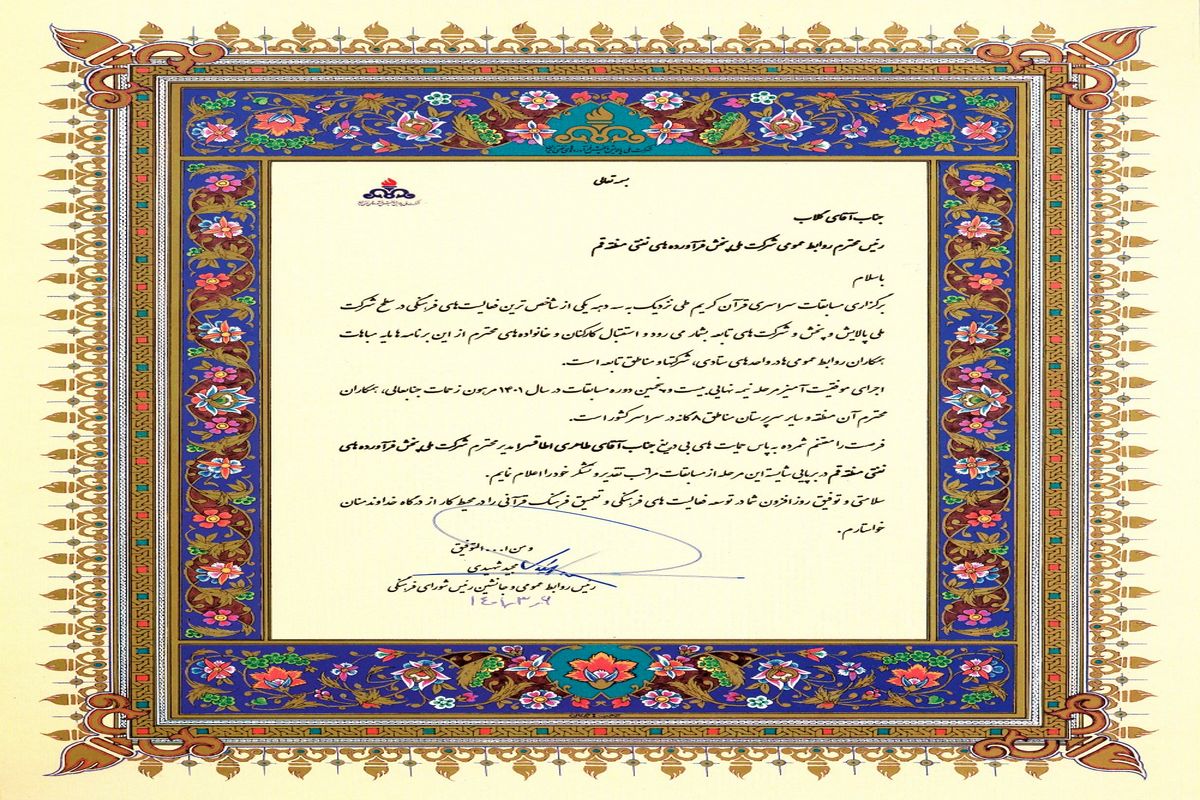 بسمه تعالی
جناب آقای گلاب
رئیس محترم روابط عمومی شرکت ملی پخش فرآورده های نفتی منطقه قم
با سلام
برگزاری مسابقات سراسری قرآن کریم طی نزدیک به سه دهه یکی از شاخص ترین فعالیت های فرهنگی در سطح شرکت
ملی پالایش و پخش و شرکت های تابعه بشمار می رود و استقبال کارکنان و خانواده های محترم از این برنامه مایه مباهات
همکاران روابط عمومی ها در واحدهای ستادی، شرکتها و مناطق تابعه است.
اجرای موفقیت آمیز مرحله نیمه نهایی بیست و پنجمین دوره مسابقات در سال ۱۴۰۱ مرهون زحمات جنابعالی، همکاران
محترم آن منطقه و سایر سرپرستان مناطق ۸ گانه در سراسر کشور است.
فرصت را مغتنم شمرده به پاس حمایت های بی دریغ جناب آقای طاهری مدیر محترم شرکت ملی پخش فرآورده های
نفتی منطقه قم در برپایی شایسته این مرحله از مسابقات مراتب تقدیر و تشکر خود را اعلام نمایم.
سلامتی و توفیق روزافزون شما در توسعه فعالیت های فرهنگی و تعمیق فرهنگ قرآنی را در محیط کار از درگاه خداوند منان
خواستارم.
و من ا... التوفیق
مجید شهیدی
رئیس روابط عمومی و جانشین رئیس شورای فرهنگی